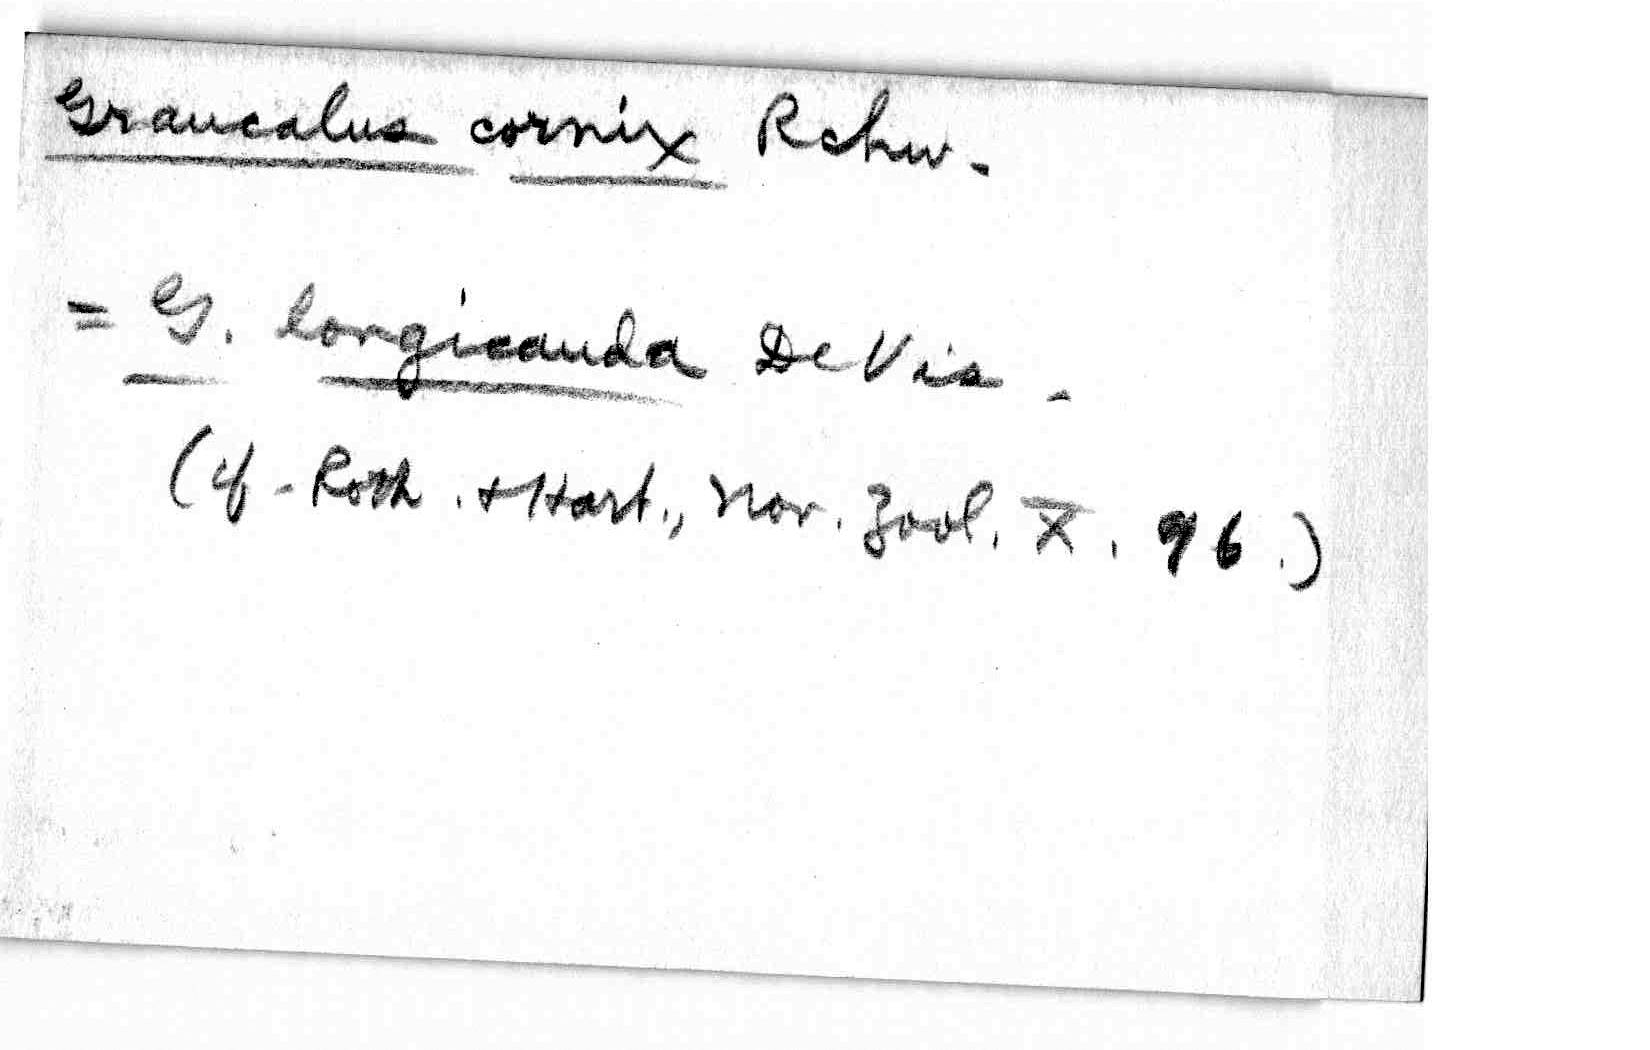 Graucalus cornix Rchw.
= G. longicauda De Vis.
(cf. Roth. + Hart., Nov. Zool. X. 96.)